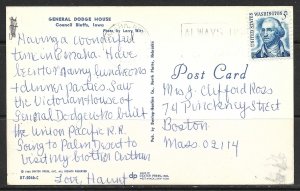 GENERAL DODGE HOUSE
Council Bluffs, Iowa
Photo by Larry Witt
Having a wonderful
time in Omaha. Have
been to many luncheons
& dinner parties. Saw
the Victorian House of
General Dodge who built
the Union Pacific R.R.
Going to Palm Desert to
visit my brother Arthur
Love,
Post Card
Mrs. Clifford Ross
74 Pinckney Street
Boston
Mass 02114
WASHINGTON